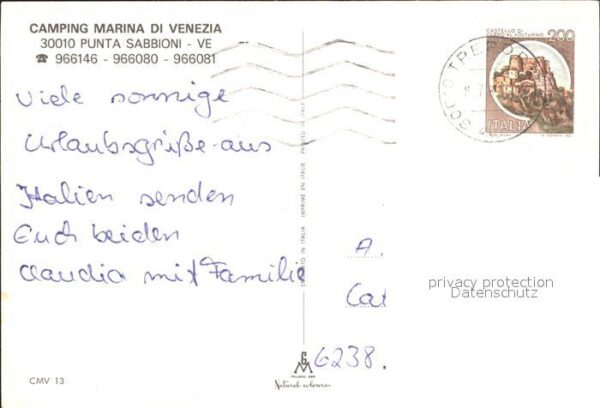 CAMPING MARINA DI VENEZIA
30010 PUNTA SABBIONI - VE
☎ 966146 - 966080 - 966081
CASTELLO DI
CERRO AL VOLTURNO 200
ITALIA
Viele sonnige
Urlaubsgrüße aus
Italien senden
Euch beiden
Claudia mit Familie
A.
Ca
6238.
privacy protection
Datenschutz
STAMPATO IN ITALIA IMPRIMÉ EN ITALIE PRINTED IN ITALY
Natural colours
CMV 13